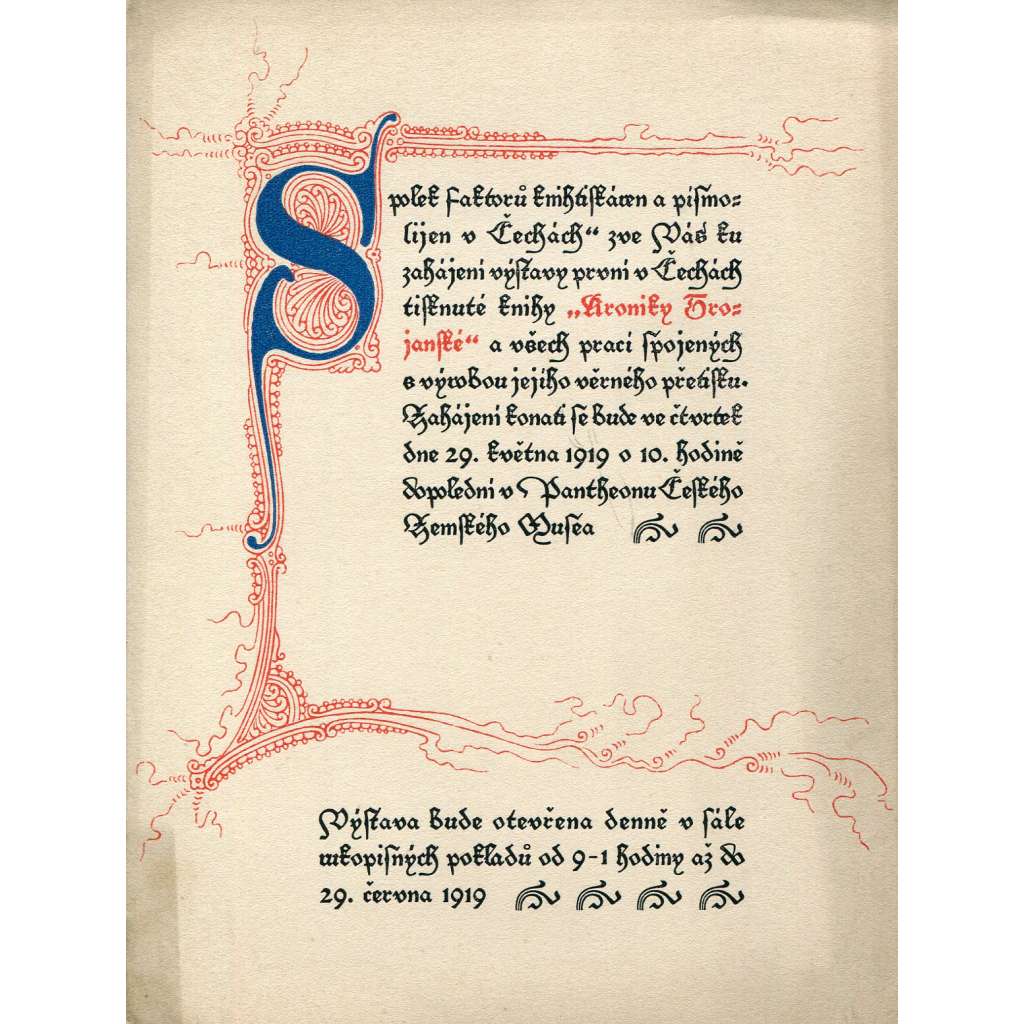 Spolek faktorů knihtiskáren a písmo-
lijen v Čechách“ zve Vás ku
zahájení výstavy první v Čechách
tisknuté knihy „Kroniky Tro-
janské“ a všech prací spojených
s výrobou jejího věrného přetisku.
Zahájení konati se bude ve čtvrtek
dne 29. května 1919 o 10. hodině
dopolední v Pantheonu Českého
Zemského Musea
Výstava bude otevřena denně v sále
rukopisných pokladů od 9-1 hodiny až do
29. června 1919